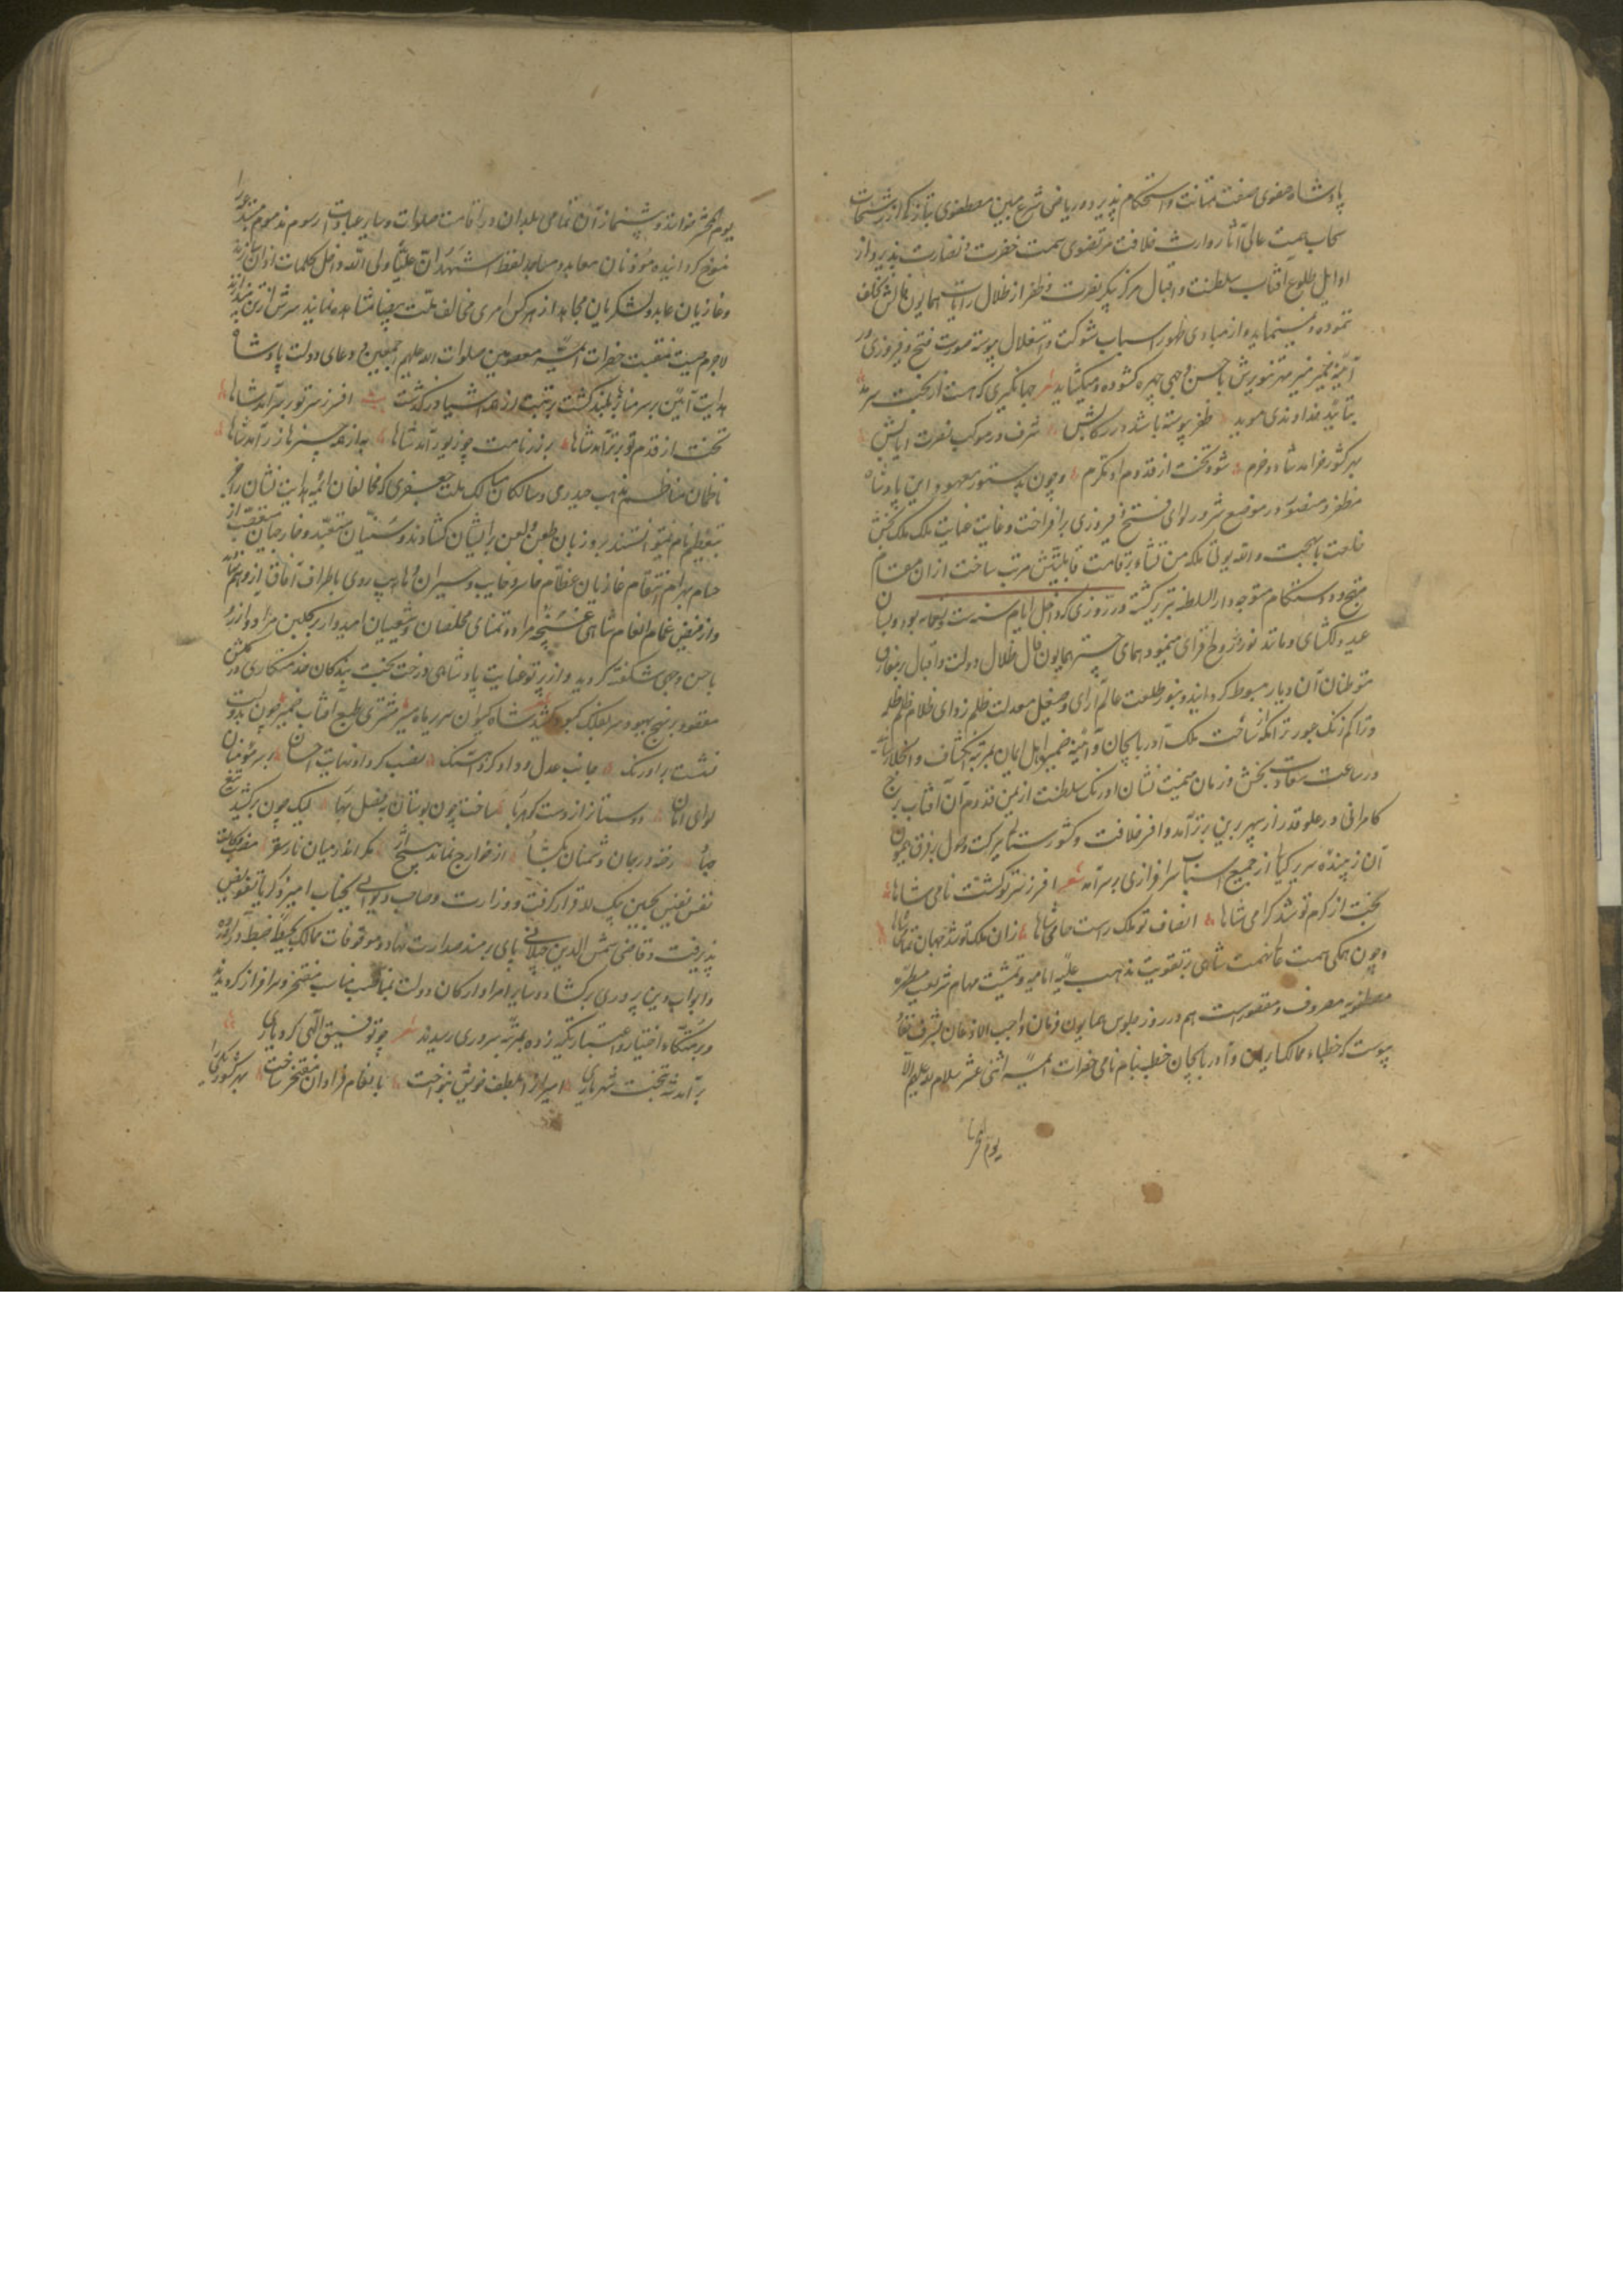 پادشاه صفوی صفت متانت و استحکام پذیرد و ریاض شرع مبین مصطفوی بتازگی از رشحات
سحاب همت عالی آثار وارث خلافت مرتضوی سمت خضرت و نضارت پذیرد از
اوایل طلوع آفتاب سلطنت و اقبال هرگز پیکر نصرت و ظفر از ظلال رایات همایون فالش تخلف
ننموده و نمینماید و از مبادی ظهور اسباب شوکت و استقلال پیوسته صورت فتح و فیروزی در
آیینه ضمیر منیر مهر تنویرش باحسن وجهی چهره کشوده و میکشاید شعر جهانگیری که هست از بخت سرمد
بتأیید خداوندی موید ظفر پیوسته باشد در رکابش شرف در موکب نصرت ایابش
بهر کشور خرامد شاد و خرم شود تخت از قدوم او مکرم و چون بدستور معهود این پادشاه
مظفر و منصور در موضع شرور لوای فتح و فیروزی برافراخت و غایت عنایت ملک ملک بخش
خلعت با بهجت والله یوتی ملکه من یشاء بر قامت قابلیتش مرتب ساخت از آن مقام
متوجه دار السلطنه تبریز گشت و در روزی که اجمل ایام سنه ست و تسعمایه بود و بسان
عید دلکشای و مانند نوروز روح افزای مینمود همای چتر همایون فال ظلال دولت و اقبال بر مفارق
متوطنان آن دیار مبسوط گردانید و بنور طلعت عالم آرای و صیقل معدلت ظلم زدای ظلام ظلم ظلمه
و تراکم زنگ جور تراکمه از ساحت ملک آذربایجان و آیینه ضمیر اهل ایمان بمرتبه انکشاف و انجلا رسانید
در ساعت سعادت بخش و زمان میمنت نشان اورنگ سلطنت از یمن قدوم آن آفتاب برج
کامرانی در علو قدر از سپهر برین برتر آمد و افسر خلافت و کشورستانی از برکت وصول بفرق همیون
آن زیبنده سریر کیانی از جمیع اسباب سرافرازی بر سر آمد شعر افسر ز سر تو گشت نامی شاها
تخت از کرم تو شد گرامی شاها انصاف تو ملک راست حامی شاها زان ملک تو شد جهان تمامی شاها
و چون همگی همت عالی نهمت شاهی بر تقویت مذهب علیه امامیه و تمشیت مهام شریعت مطهره
مصطفویه مصروف و مقصور است هم در روز جلوس همایون فرمان واجب الاذعان بشرف نفاذ
پیوست که خطباء ممالک ایران و آذربایجان خطبه بنام نامی حضرات ائمه اثنی عشر سلام الله علیهم الی
یوم الحشر
یوم الحشر خوانند و پیشنمازان تمامی بلدان در اقامت صلوات و سایر عبادات رسوم مذموم مبتدعه را
منسوخ گردانیده موذنان معابد و مساجد لفظ اشهد ان علیا ولی الله داخل کلمات اذان سازند
و غازیان عابد و لشکریان مجاهد از هر کس امری مخالف ملت بیضا مشاهده نمایند سرش از تن بیندازند
لاجرم صیت منقبت حضرات ائمه معصومین صلوات الله علیهم اجمعین و دعای دولت پادشاه
هدایت آئین بر سر منابر بلند گشت افسر ز سر تو بر سر آمد شاها
تخت از قدم تو برتر آمد شاها بر زر نامت چو زیور آمد شاها
ناظمان مناظم مذهب حیدری و سالکان مسالک ملت جعفری که مخالفان ائمه هدایت نشان را جز
بتعظیم نام نمیتوانستند برد زبان طعن و لعن بر ایشان گشادند و سنیان متعبد و خارجیان متعصب از
حسام بهرام انتقام غازیان عظام خاسر و خایب و سیران و هارب روی باطراف آفاق آوردند
و از فیض غمام انعام شاهی غنچه مراد و تمنای مخلصان و شیعیان امیدوار در گلبن مراد
باحسن وجهی شکفته گردید و از پرتو عنایت پادشاهی درخت بخت بندگان خدمتکاری در گلشن
مقصود بر نهج بهبود سر بفلک کبود کشید شعر شاه کیوان سریر ماه مسیر مشتری طبع آفتاب ضمیر چون بدولت
نشست بر اورنگ جانب عدل و داد کرد آهنگ نصب کرد از نهایت احسان بر سر مؤمنان
لوای امان دوستانرا از دست گوهر بار ساخت چون بوستان بفصل بهار لیک چون برکشید تیغ
جفا رخنه در جان دشمنان بگشاد از خوارج نماند هیچ اثر مگر اندر میان نار سقر منصب وکالت
نفس نفیس بحسین بیک لله قرار گرفت و وزارت و صاحب دیوانی بجناب امیر زکریا تفویض
پذیرفت و قاضی شمس الدین جیلانی پای بر مسند صدارت نهاد و موقوفات ممالک بحیطه ضبط درآورده
و ابواب دین پروری برگشاد و سایر امرا و ارکان دولت بمناصب مناسب مفتخر و سرافراز گردیدند
و بر متکاء اختیار و اعتبار تکیه زده بمرتبه سروری رسیدند شعر چو توفیق الهی کرد یاری
برآمد شه بتخت شهریاری امیران را بلطف خویش بنواخت بانعام فراوان مفتخر ساخت بهر کشور یکی را